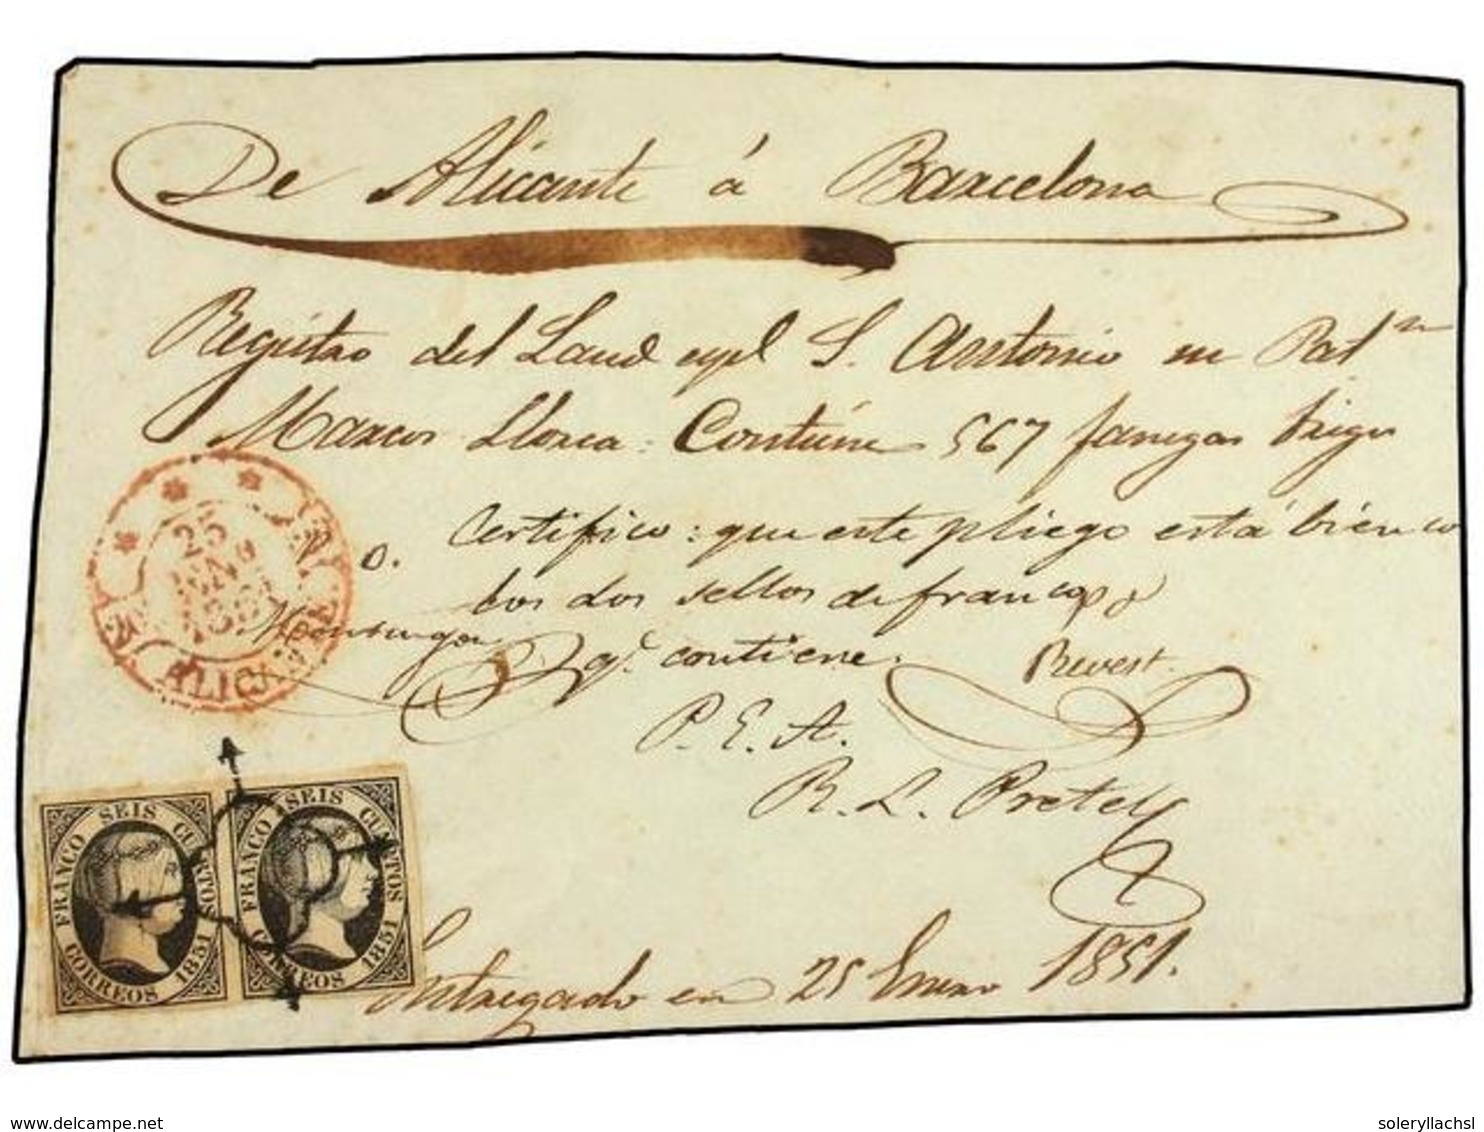 De Alicante á Barcelona
Registro del Laud espl S. Antonio su Patn
Marcos Llorca: Contiene 567 fanegas trigo
Certifico: que este pliego está bien co
o.
los dos sellos de franco
qe. contiene.
Revest.
P. E. A.
R. L. Pretel
25
ENO
1851
ALICANTE
FRANCO SEIS CUARTOS
CORREOS 1851
FRANCO SEIS CUARTOS
CORREOS 1851
Entregado en 25 Enero 1851.
www.delcampe.net
soleryllachsl